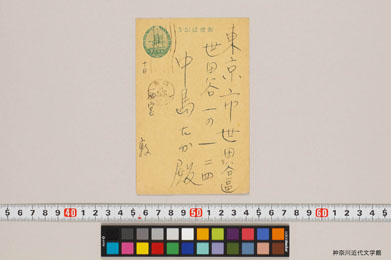 東京市世田谷區
世田谷一の一二四
中島たか殿
5 6 7 8 9 40 1 2 3 4 5 6 7 8 9 50 1 2 3 4 5 6 7 8 9 60 1 2 3 4 5
神奈川近代文学館